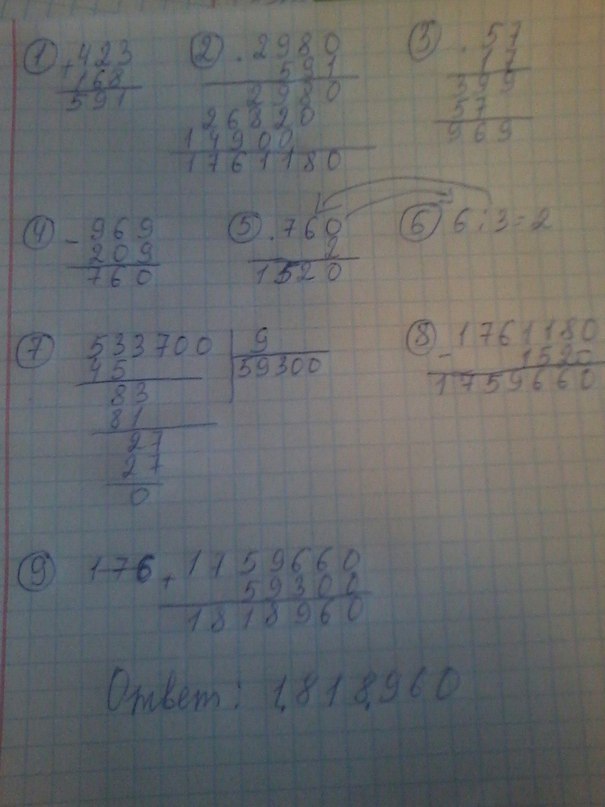 ① +423
168
591
② .2980
591
2980
26820
14900
1761180
③ .57
17
399
57
969
④ -969
209
760
⑤ .760
2
1520
⑥ 6:3=2
⑦ 533700 9
45 59300
83
81
27
27
0
⑧ -1761180
1520
1759660
⑨ 176 +1759660
59300
1818960
Ответ: 1,818,960